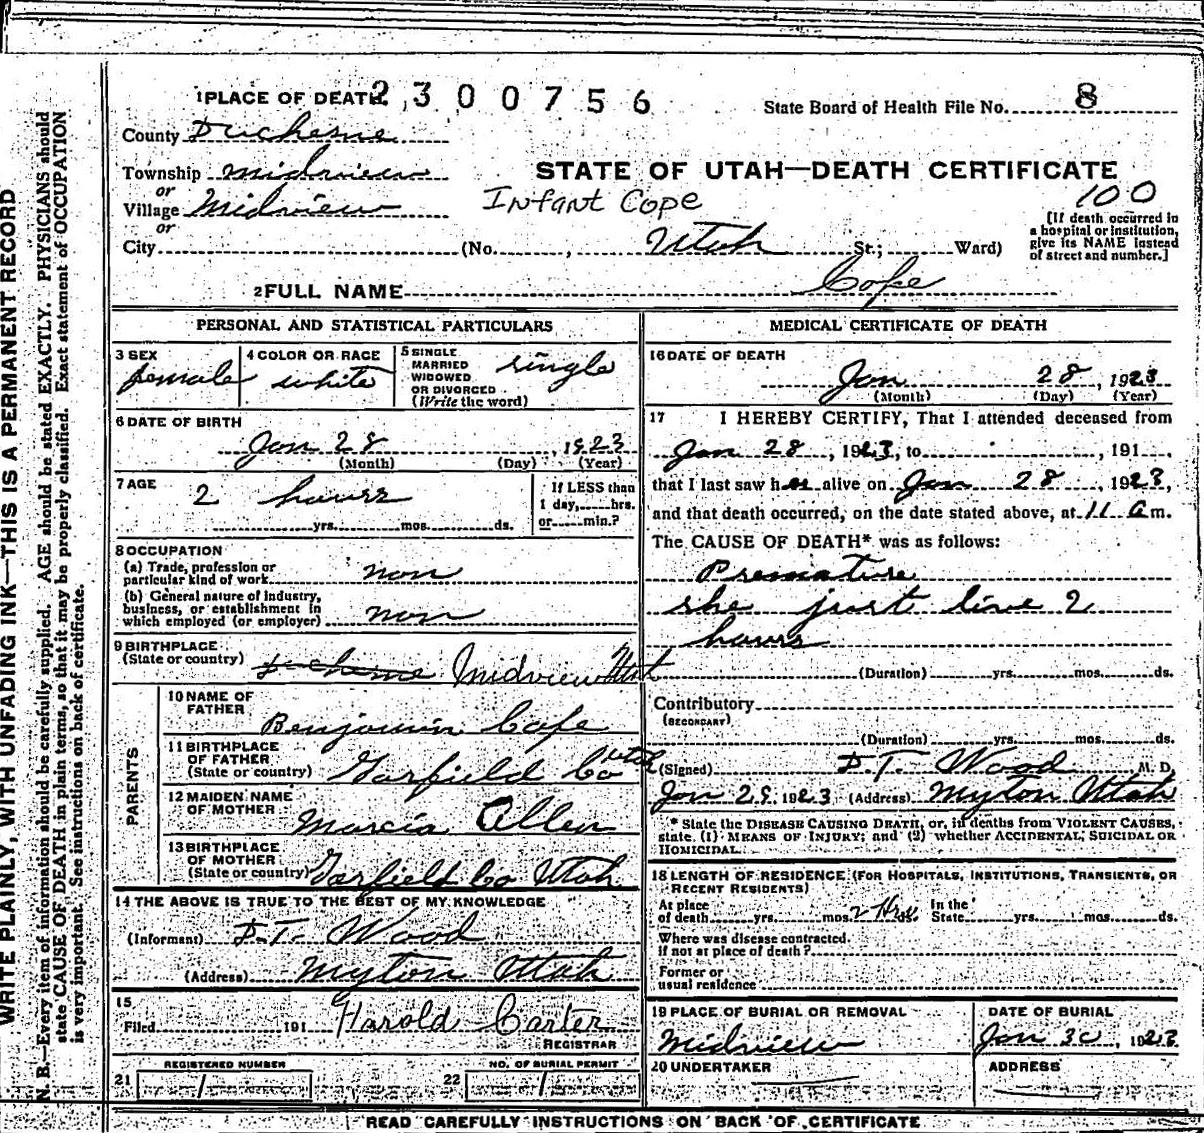 1 PLACE OF DEATH 2300756
State Board of Health File No. 8
County Duchesne
Township midview
or
Village Midview
or
City (No. , Utah St.; Ward)
STATE OF UTAH—DEATH CERTIFICATE
Infant Cope
100
[If death occurred in
a hospital or institution,
give its NAME instead
of street and number.]
2 FULL NAME Cope
PERSONAL AND STATISTICAL PARTICULARS
3 SEX
female
4 COLOR OR RACE
white
5 SINGLE
MARRIED
WIDOWED
OR DIVORCED
(Write the word)
single
6 DATE OF BIRTH
Jan 28, 1923
(Month) (Day) (Year)
7 AGE
2 hours
yrs. mos. ds.
If LESS than
1 day, hrs.
or min.?
8 OCCUPATION
(a) Trade, profession or
particular kind of work non
(b) General nature of industry,
business, or establishment in
which employed (or employer) non
9 BIRTHPLACE
(State or country) Duchesne Midview Utah
PARENTS
10 NAME OF
FATHER
Benjamin Cope
11 BIRTHPLACE
OF FATHER
(State or country) Garfield Co Utah
12 MAIDEN NAME
OF MOTHER
Marcia Allen
13 BIRTHPLACE
OF MOTHER
(State or country) Garfield Co Utah
14 THE ABOVE IS TRUE TO THE BEST OF MY KNOWLEDGE
(Informant) D.T. Wood
(Address) Myton Utah
15
Filed 191 Harold Carter
REGISTRAR
REGISTERED NUMBER
21
NO. OF BURIAL PERMIT
22
MEDICAL CERTIFICATE OF DEATH
16 DATE OF DEATH
Jan 28, 1923
(Month) (Day) (Year)
17 I HEREBY CERTIFY, That I attended deceased from
Jan 28, 1923, to , 191
that I last saw her alive on Jan 28, 1923,
and that death occurred, on the date stated above, at 11 a m.
The CAUSE OF DEATH* was as follows:
Premature
she just live 2
hours
(Duration) yrs. mos. ds.
Contributory
(SECONDARY)
(Duration) yrs. mos. ds.
(Signed) D.T. Wood M. D.
Jan 29, 1923 (Address) Myton Utah
* State the DISEASE CAUSING DEATH, or, in deaths from VIOLENT CAUSES,
state (1) MEANS OF INJURY; and (2) whether ACCIDENTAL, SUICIDAL OR
HOMICIDAL.
18 LENGTH OF RESIDENCE (FOR HOSPITALS, INSTITUTIONS, TRANSIENTS, OR
RECENT RESIDENTS)
At place In the
of death yrs. mos. 2 Hrs. State yrs. mos. ds.
Where was disease contracted.
if not at place of death?
Former or
usual residence
19 PLACE OF BURIAL OR REMOVAL
Midview
DATE OF BURIAL
Jan 30, 1923
20 UNDERTAKER
ADDRESS
READ CAREFULLY INSTRUCTIONS ON BACK OF CERTIFICATE
WRITE PLAINLY, WITH UNFADING INK—THIS IS A PERMANENT RECORD
N. B.—Every item of information should be carefully supplied. AGE should be stated EXACTLY. PHYSICIANS should
state CAUSE OF DEATH in plain terms, so that it may be properly classified. Exact statement of OCCUPATION
is very important. See instructions on back of certificate.